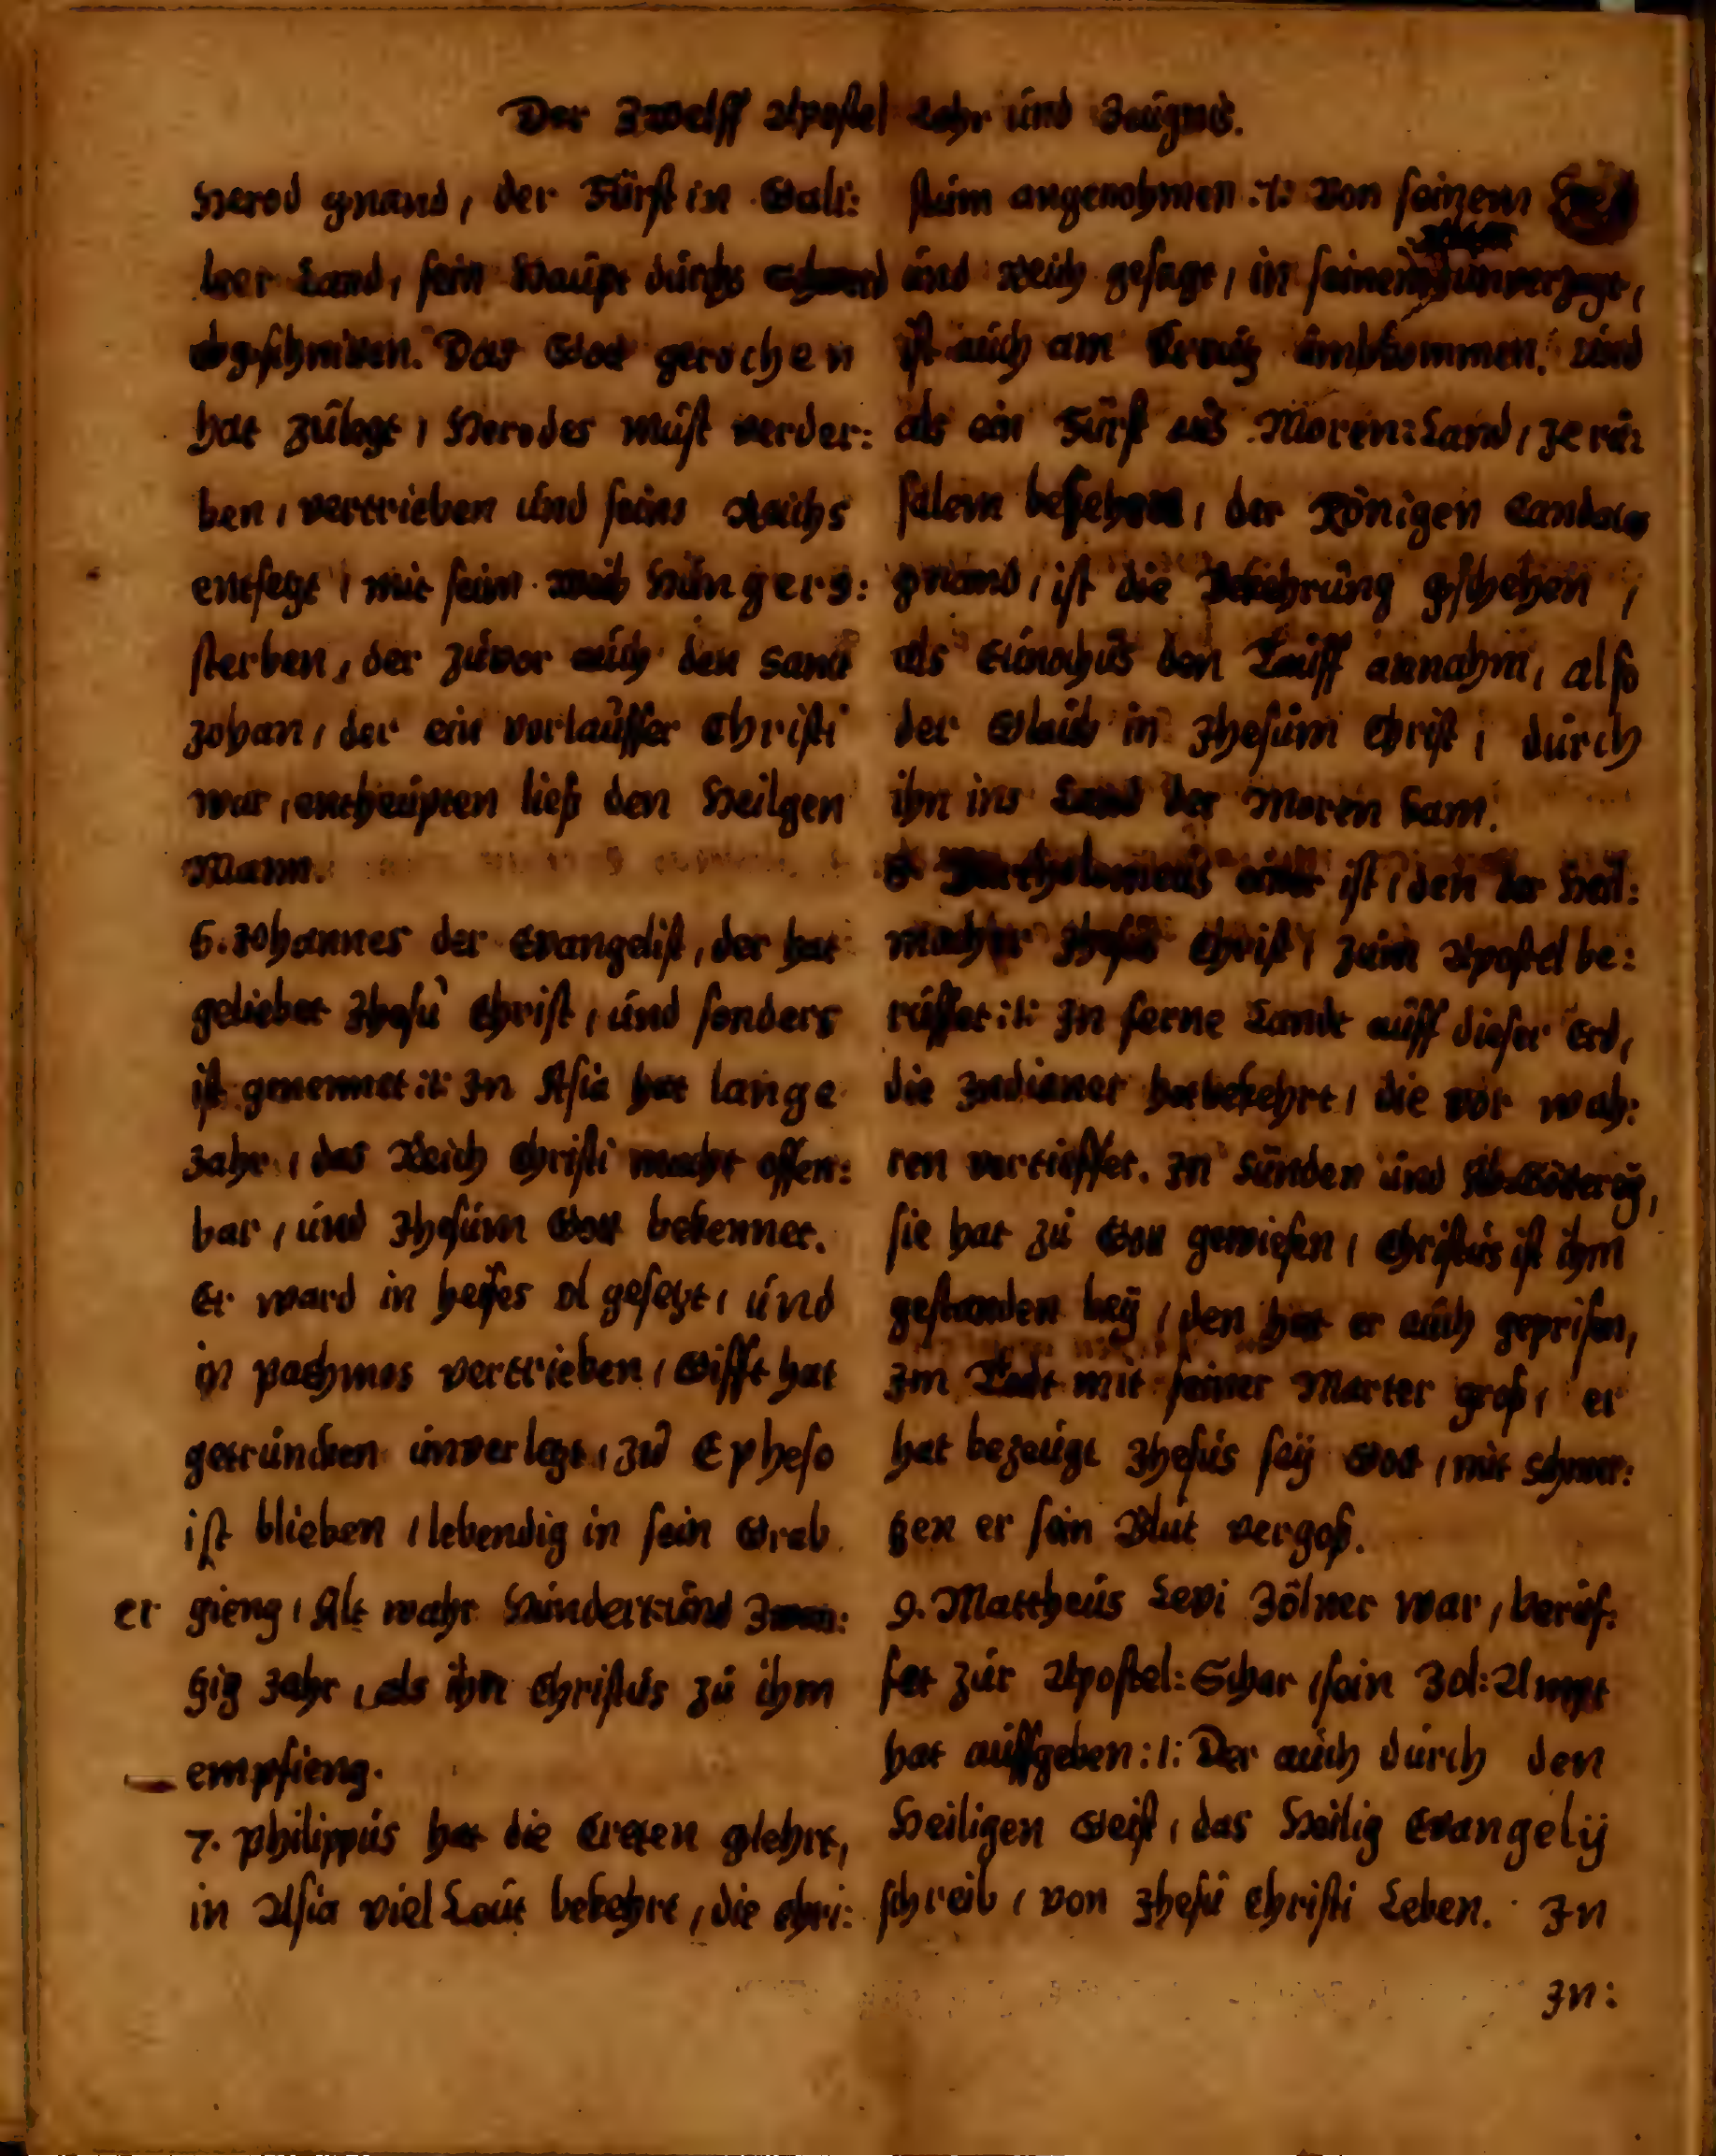 Der Zwelff Apostel Lehr und Zeugnus.
Herod gnand, der Fürst in Gali:
leer Land, sein Haupt durchs schwerd
abgschniten. Das Gott gerochen
hat zulegt, Herodes must verder:
ben, vertrieben und seins Reichs
entsegt, mit seim weib Hungers:
sterben, der zuvor auch den Sanct
Johan, der ein vorlauffer Christi
war, entheupten ließ den Heilgen
Mann.
6. Johannes der Evangelist, der hat
geliebet Jhesu Christ, und sonders
ist genennet :1: In Asia hat lange
Jahr, das Reich Christi macht offen:
bar, und Jhesum Gott bekennet.
Er ward in heises öl gesetzt, und
in pathmos vertrieben, Gifft hat
getruncken unverletzt, zu Epheso
ist blieben, lebendig in sein Grab
er gieng, Alt wahr Hundert und Zwan:
tzig Jahr, als ihn Christus zu ihm
empfieng.
7. Philippus hat die Creten glehrt,
in Asia viel Leut bekehrt, die Chri:
stum angenohmen :1: Von seinem
und Reich gesagt, in seinem unverzagt,
ist auch am Creutz umbkommen. Und
als ein Fürst aus Moren:Land, Jeru:
salem besehen, der Königen Candaces
gnand, ist die Bekehrung gschehen,
als Eunochus den Tauff annahm, also
der Glaub in Jhesum Christ, durch
ihn ins Land der Moren kam.
8. Bartholomeus einer ist, den der Heil:
macher Jhesus Christ, zum Apostel be:
ruffet :1: In ferne Lande auff dieser Erd,
die Indianer hat bekehrt, die vor wah:
ren vertieffet. In Sünden und Ab-Götterey,
sie hat zu Gott gewiesen, Christus ist ihm
gestanden bey, den hat er auch geprisen,
Im Todt mit seiner Marter groß, er
hat bezeugt Jhesus sey Gott, mit Schmer:
tzen er sein Blut vergoß.
9. Mattheus Levi Zölner war, beruf:
fet zur Apostel:Schar, sein Zol:Ampt
hat auffgeben :1: Der auch durch den
Heiligen Geist, das Heilig Evangely
schreib, von Jhesu Christi Leben. In
In: